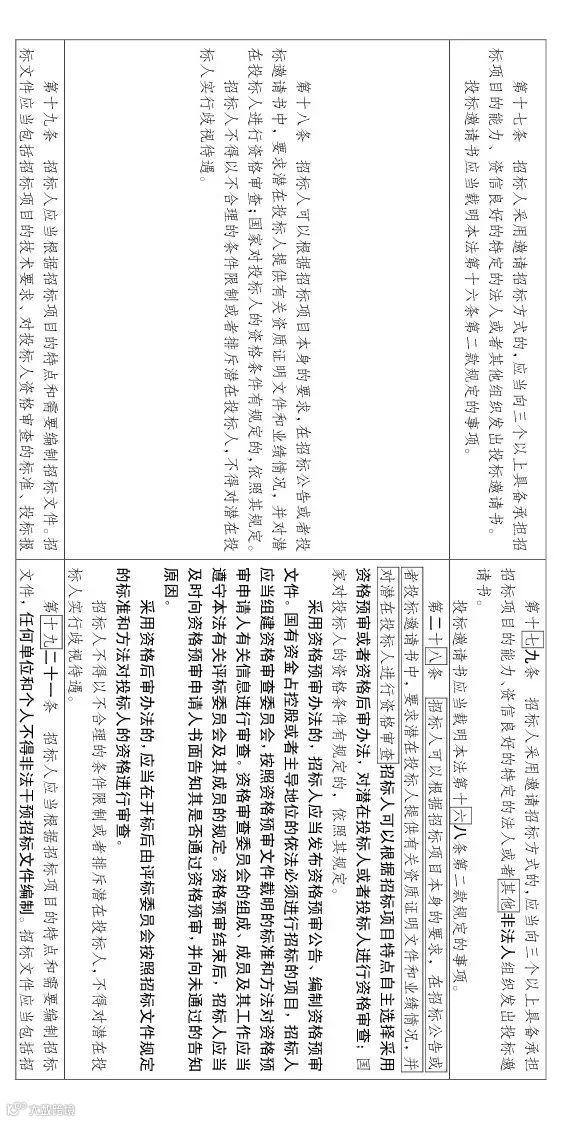 第十七条 招标人采用邀请招标方式的，应当向三个以上具备承担招
标项目的能力、资信良好的特定的法人或者其他组织发出投标邀请书。
投标邀请书应当载明本法第十六条第二款规定的事项。
第十七九条 招标人采用邀请招标方式的，应当向三个以上具备承担
招标项目的能力、资信良好的特定的法人或者其他非法人组织发出投标邀
请书。
投标邀请书应当载明本法第十六八条第二款规定的事项。
第十八条 招标人可以根据招标项目本身的要求，在招标公告或者投
标邀请书中，要求潜在投标人提供有关资质证明文件和业绩情况，并对潜
在投标人进行资格审查；国家对投标人的资格条件有规定的，依照其规定。
招标人不得以不合理的条件限制或者排斥潜在投标人，不得对潜在投
标人实行歧视待遇。
第二十八条 招标人可以根据招标项目本身的要求，在招标公告或
者投标邀请书中，要求潜在投标人提供有关资质证明文件和业绩情况，并
对潜在投标人进行资格审查招标人可以根据招标项目特点自主选择采用
资格预审或者资格后审办法，对潜在投标人或者投标人进行资格审查；国
家对投标人的资格条件有规定的，依照其规定。
采用资格预审办法的，招标人应当发布资格预审公告、编制资格预审
文件。国有资金占控股或者主导地位的依法必须进行招标的项目，招标人
应当组建资格审查委员会，按照资格预审文件载明的标准和方法对资格预
审申请人有关信息进行审查。资格审查委员会的组成、成员及其工作应当
遵守本法有关评标委员会及其成员的规定。资格预审结束后，招标人应当
及时向资格预审申请人书面告知其是否通过资格预审，并向未通过的告知
原因。
采用资格后审办法的，应当在开标后由评标委员会按照招标文件规定
的标准和方法对投标人的资格进行审查。
招标人不得以不合理的条件限制或者排斥潜在投标人，不得对潜在投
标人实行歧视待遇。
第十九条 招标人应当根据招标项目的特点和需要编制招标文件。招
标文件应当包括招标项目的技术要求、对投标人资格审查的标准、投标报
第十九二十一条 招标人应当根据招标项目的特点和需要编制招标
文件，任何单位和个人不得非法干预招标文件编制。招标文件应当包括招
大数跨境